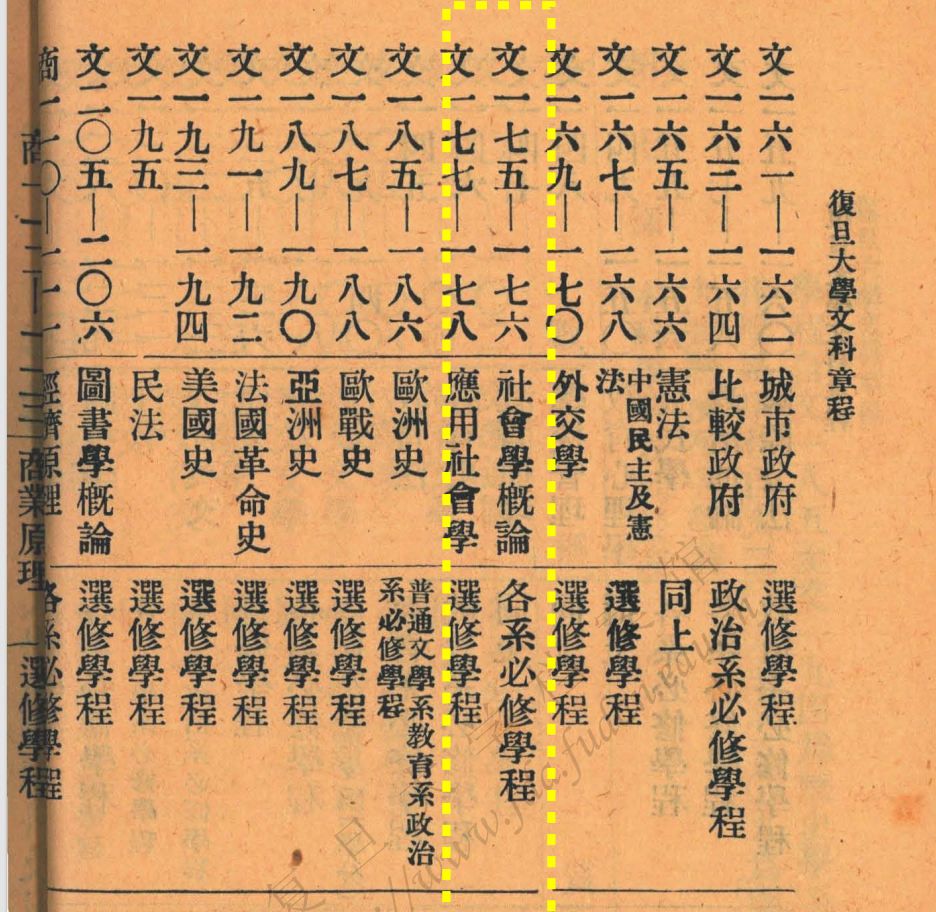 復旦大學文科章程
文一六一—一六二 城市政府 選修學程
文一六三—一六四 比較政府 政治系必修學程
文一六五—一六六 憲法 同上
文一六七—一六八 中國民主及憲法 選修學程
文一六九—一七〇 外交學 選修學程
文一七五—一七六 社會學概論 各系必修學程
文一七七—一七八 應用社會學 選修學程
文一八五—一八六 歐洲史 普通文學系教育系政治系必修學程
文一八七—一八八 歐戰史 選修學程
文一八九—一九〇 亞洲史 選修學程
文一九一—一九二 法國革命史 選修學程
文一九三—一九四 美國史 選修學程
文一九五 民法 選修學程
文二〇五—二〇六 圖書學概論 選修學程
商 經濟原理 各系必修學程
商業原理 選修學程